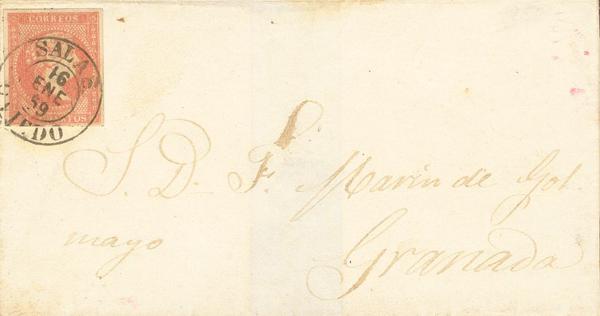 CORREOS
SALAS
16
ENE
59
OVIEDO
S. D. F. Marin de Gol
mayo
Granada